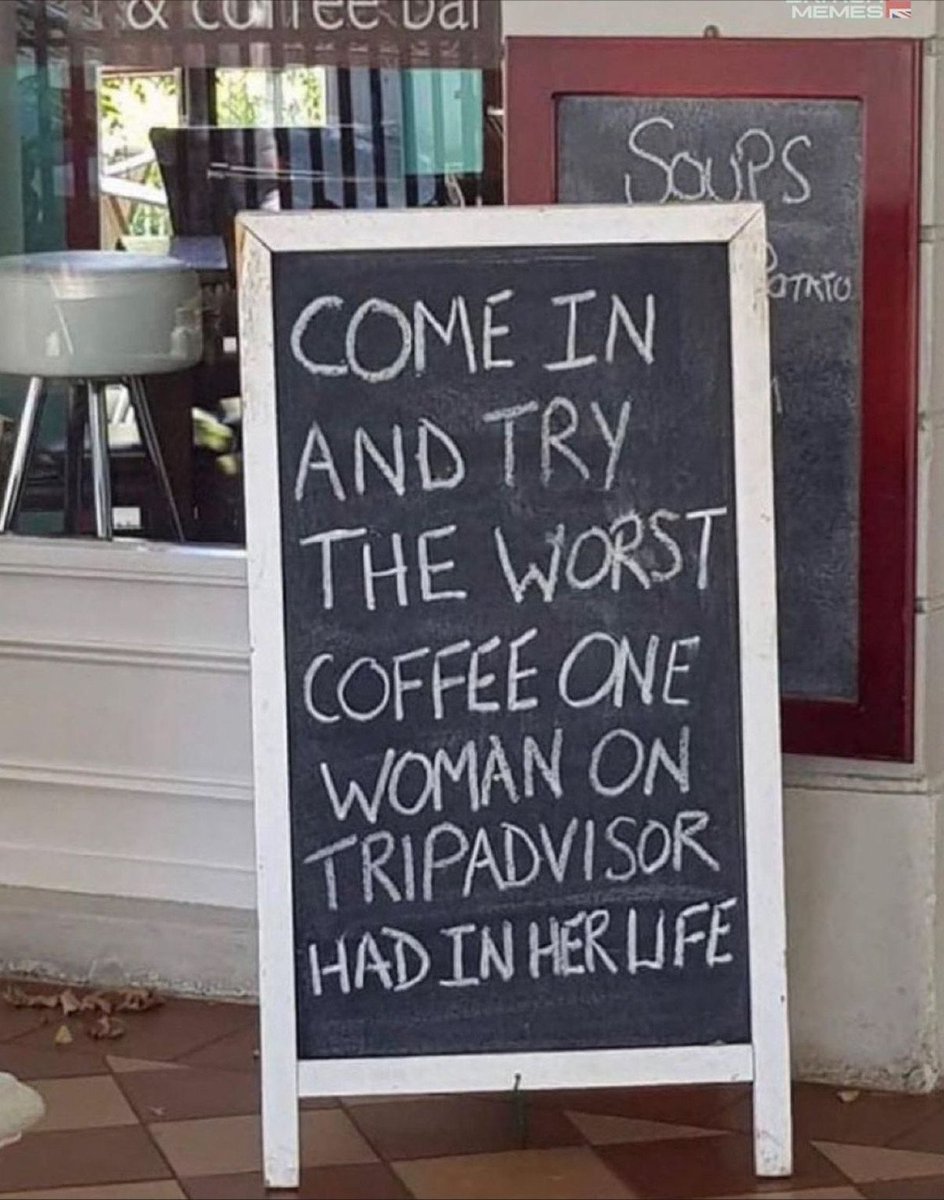 & coffee bar
MEMES
SOUPS
COME IN
AND TRY
THE WORST
COFFEE ONE
WOMAN ON
TRIPADVISOR
HAD IN HER LIFE